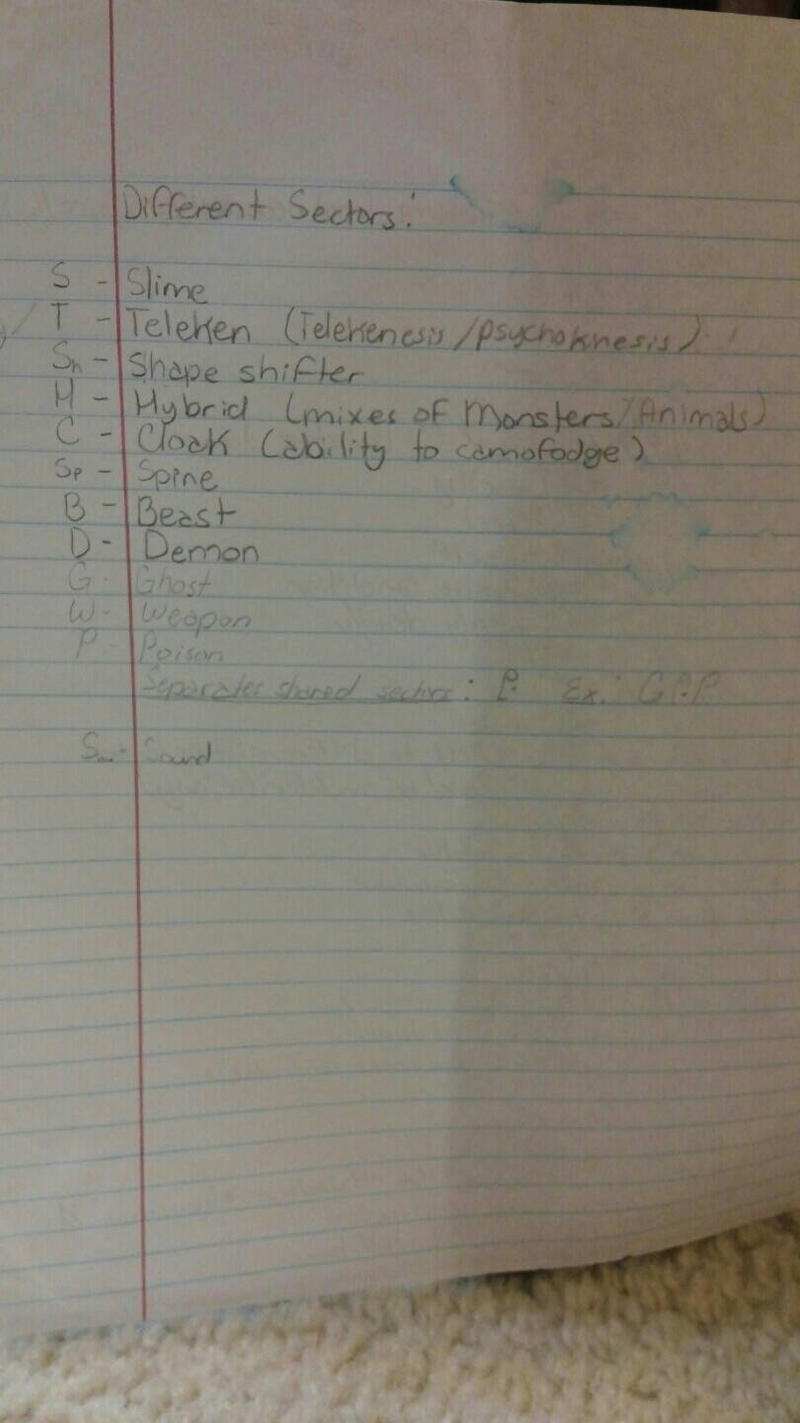 Different Sectors:
S - Slime
T - Teleken (Telekenesis/psychoknesis)
Sh - Shape shifter
H - Hybrid (mixes of Monsters/Animals)
C - Cloak (ability to camofodge)
Sp - Spine
B - Beast
D - Demon
G - Ghost
W - Weapon
P - Poison
Separates shared sectors: Ex:
Sound